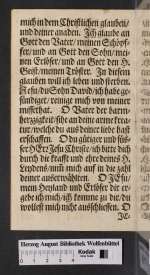 mich in dem Christlichen glauben/
und deiner gnaden. Ich glaube an
Gott den Vater/ meinen Schöpf-
fer/ und an Gott den Sohn/ mei-
nen Erlöser/ und an Gott den H.
Geist/ meinen Tröster. In diesem
glauben will ich leben und sterben.
Jesu du Sohn David/ ich habe ge-
sündiget/ reinige mich von meiner
missethat. O Vater der barm-
herzigkeit/ sihe an deine arme krea-
tur/ welche du aus deiner liebe hast
erschaffen. O du gütiger und süs-
ser HErr Jesu Christe/ ich bitte dich
durch die krafft und ehre deines H.
Leydens/ nim mich auf in die zahl
deiner auserwählten. O JEsu/
mein Heyland und Erlöser dir er-
gebe ich mich/ ich komme zu dir/ du
wollest mich nicht ausschliessen. O
JE-
Herzog August Bibliothek Wolfenbüttel